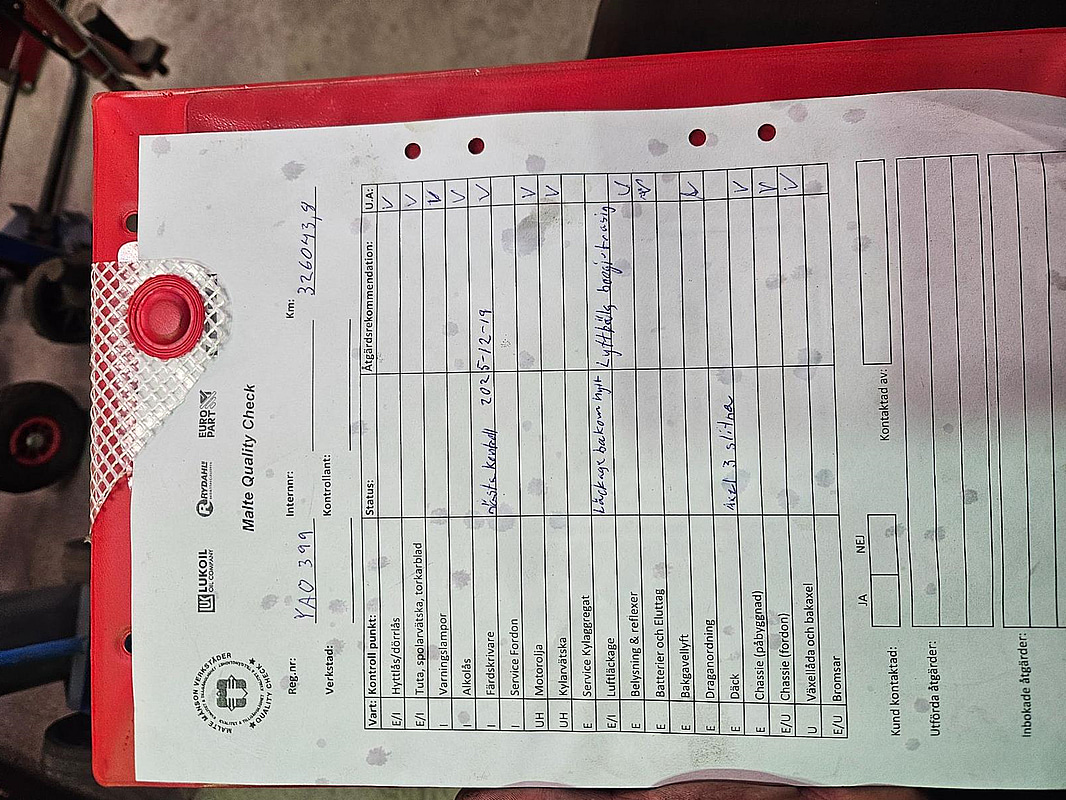 MALTE MÅNSON VERKSTÄDER
QUALITY CHECK
LUKOIL
OIL COMPANY
RYDAHLS
EURO
PART
Malte Quality Check
Reg.nr: YAO 399 Internnr: Km: 326043,8
Verkstad: Kontrollant:
Vart: Kontroll punkt: Status: Åtgärdsrekommendation: U.A:
E/I Hyttlås/dörrlås V
E/I Tuta, spolarvätska, torkarblad V
I Varningslampor V
I Alkolås V
I Färdskrivare Nästa kontroll 2025-12-19 V
I Service Fordon
UH Motorolja V
UH Kylarvätska V
E Service Kylaggregat
E/I Luftläckage Läckage bakom hytt Lyftbälg boogie trasig
E Belysning & reflexer V
E Batterier och Eluttag
E Bakgavellyft V
E Draganordning
E Däck axel 3 slitna V
E Chassie (påbyggnad) V
E/U Chassie (fordon) V
U Växellåda och bakaxel
E/U Bromsar
JA NEJ
Kund kontaktad: Kontaktad av:
Utförda åtgärder:
Inbokade åtgärder: